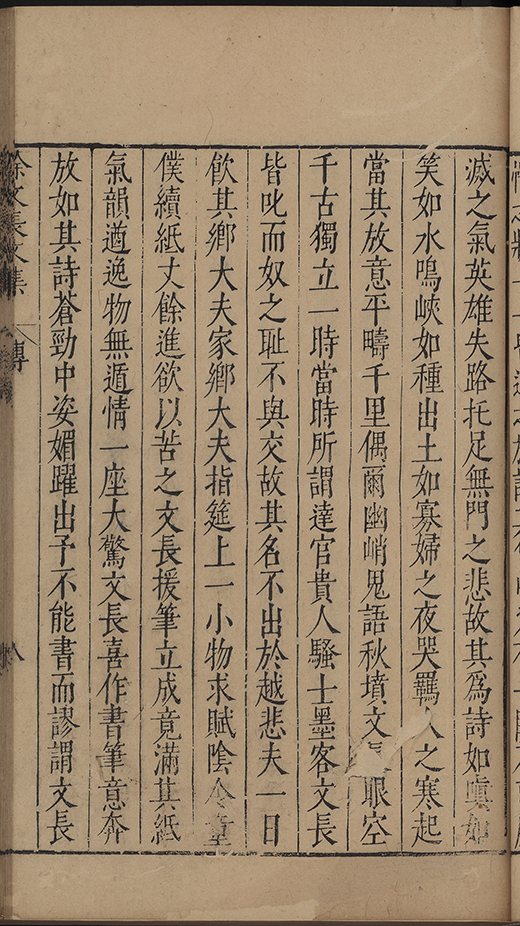 滅之氣英雄失路托足無門之悲故其爲詩如嗔如
笑如水鳴峽如種出土如寡婦之夜哭羈人之寒起
當其放意平疇千里偶爾幽峭鬼語秋墳文長眼空
千古獨立一時當時所謂達官貴人騷士墨客文長
皆叱而奴之耻不與交故其名不出於越悲夫一日
飲其鄉大夫家鄉大夫指筵上一小物求賦陰令童
僕續紙丈餘進欲以苦之文長援筆立成竟滿其紙
氣韻遒逸物無遁情一座大驚文長喜作書筆意奔
放如其詩蒼勁中姿媚躍出予不能書而謬謂文長
徐文長文集 傳 八